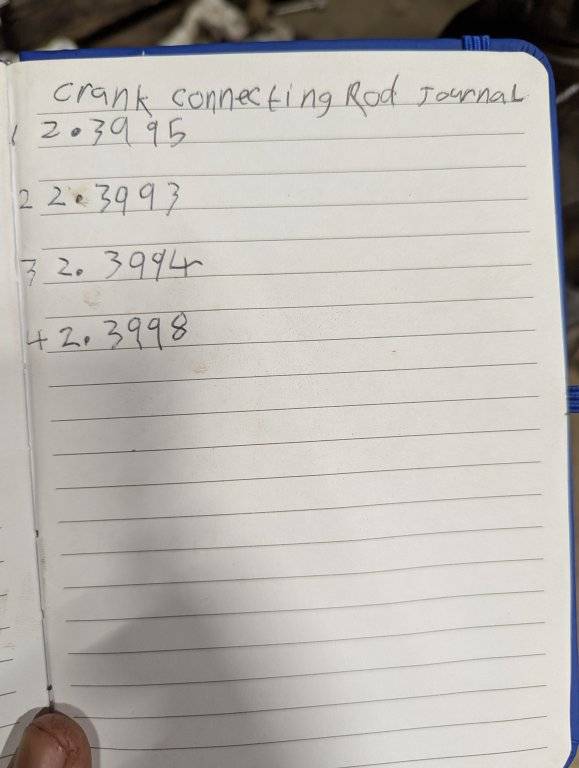 Crank Connecting Rod Journal
1 2.3995
2 2.3993
3 2.3994
4 2.3998